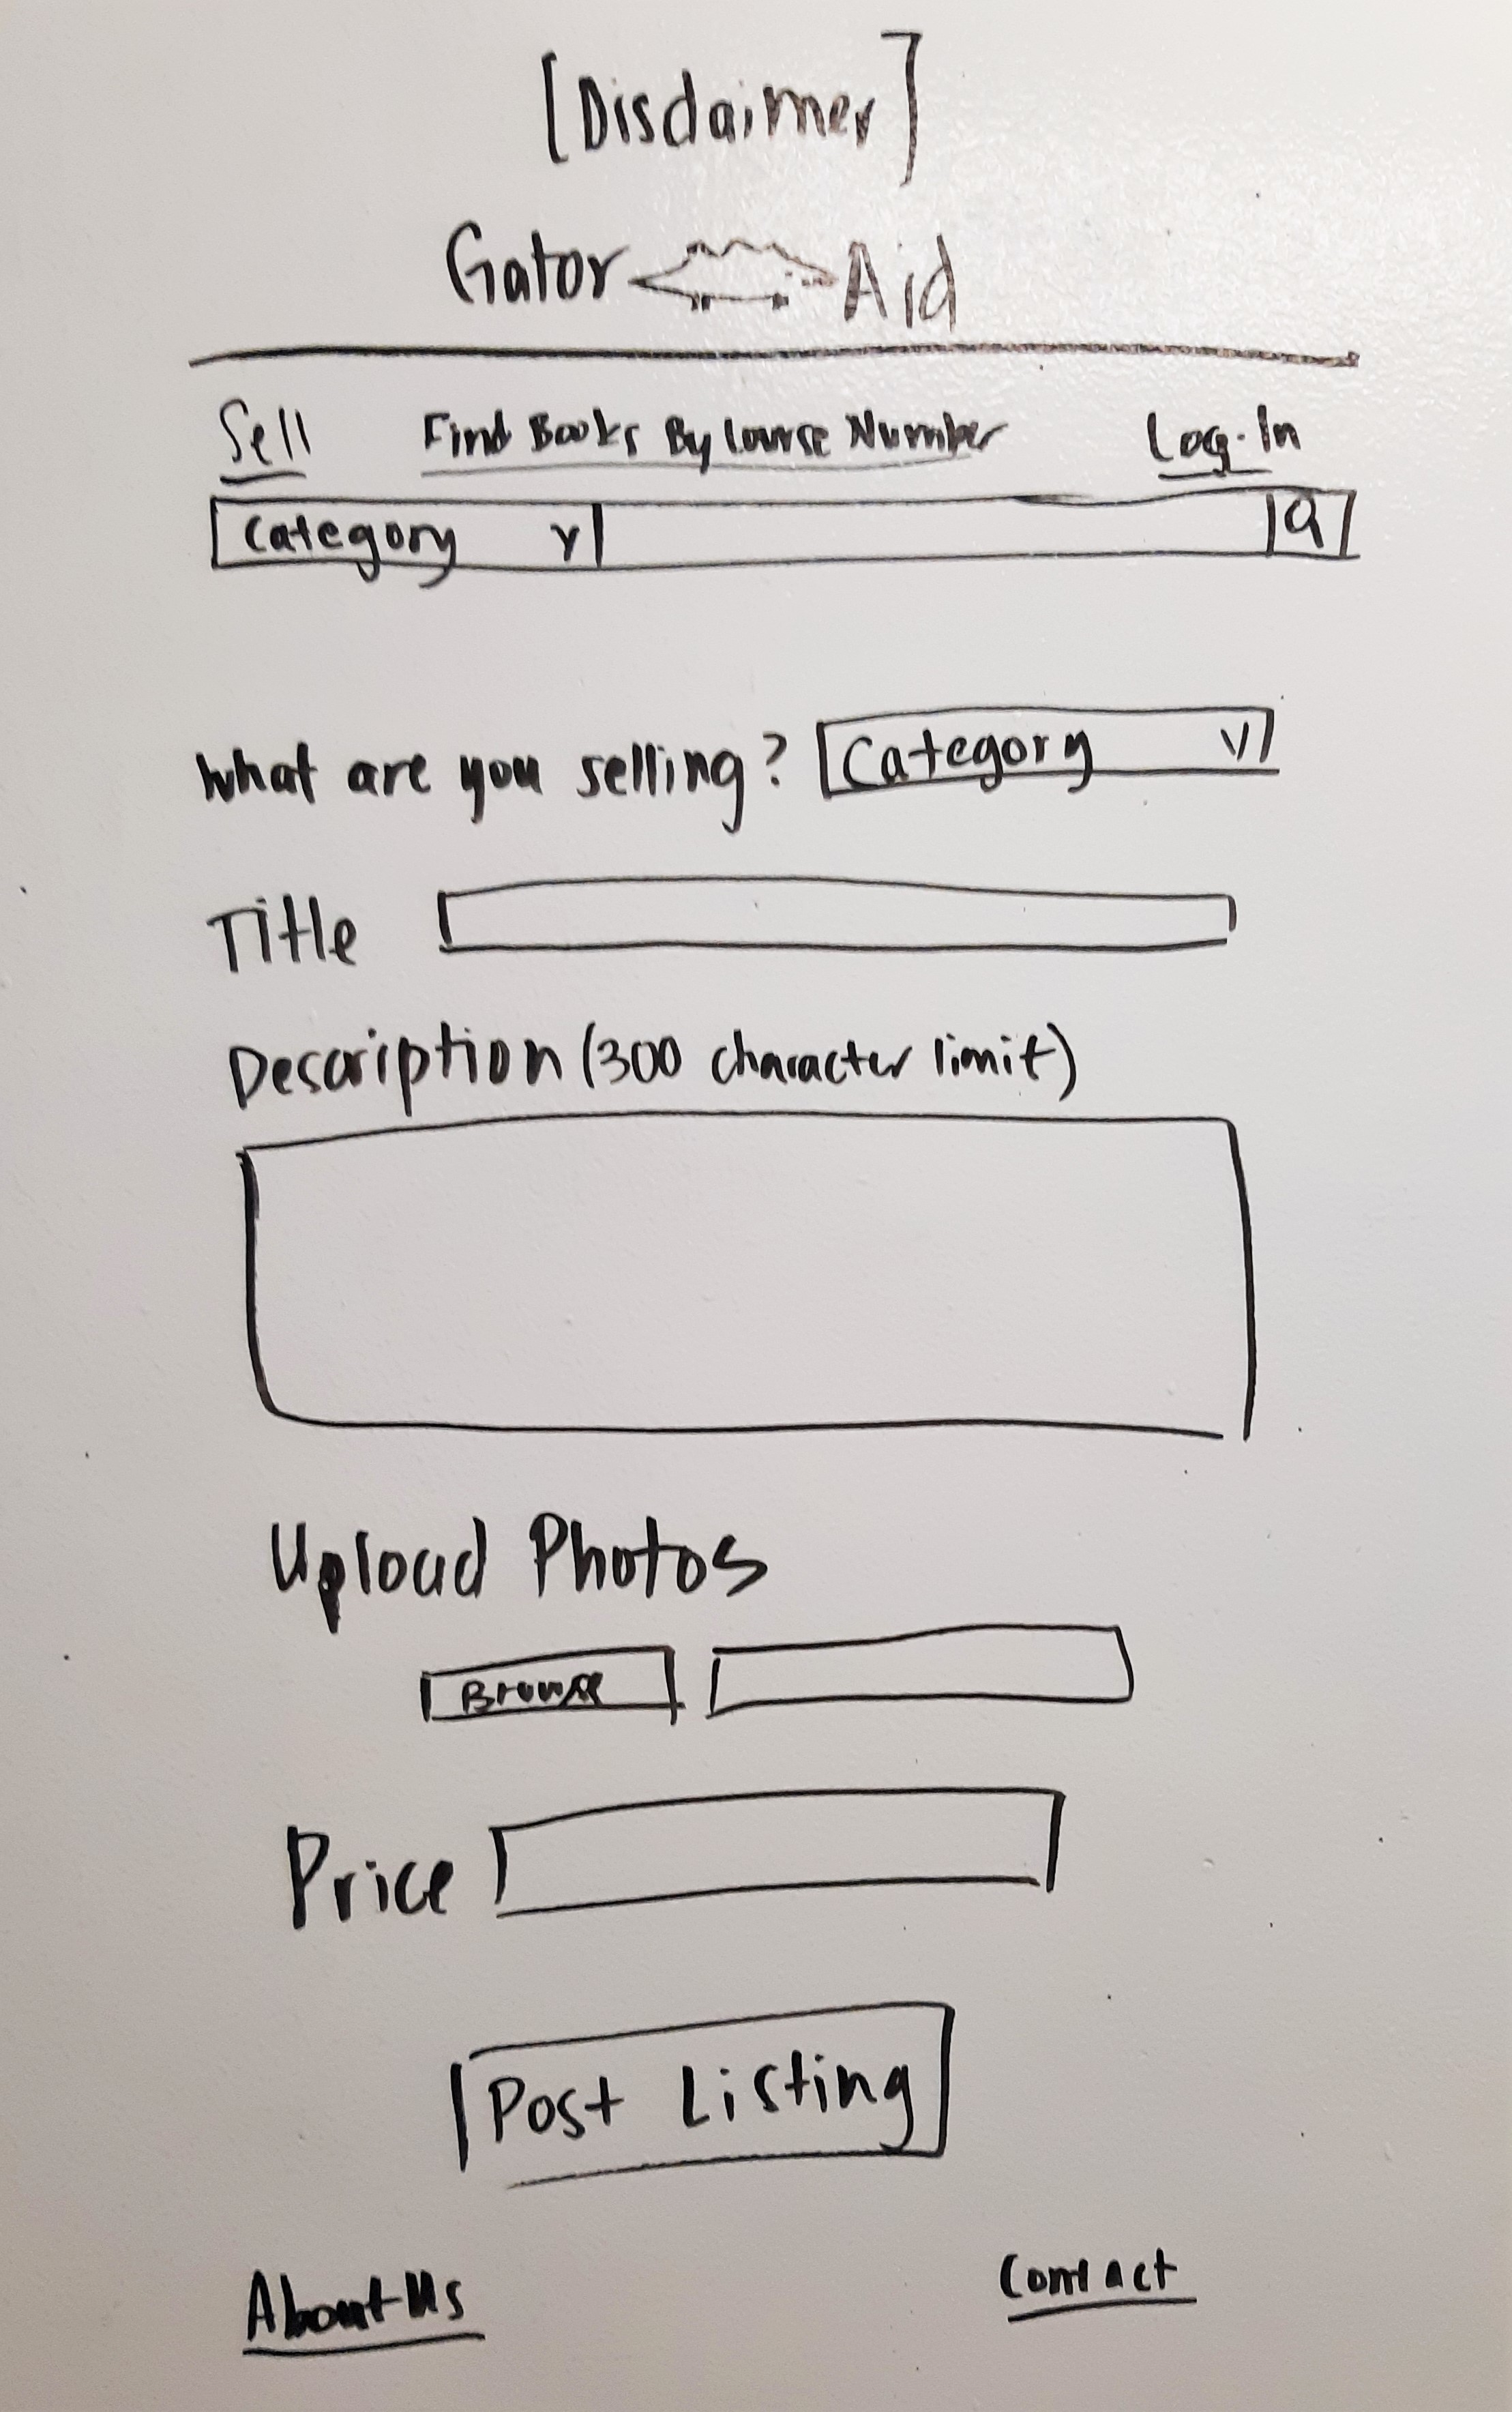 [Disclaimer]
Gator Aid
Sell Find Books By Course Number Log-In
Category
What are you selling? Category
Title
Description (300 character limit)
Upload Photos
Browse
Price
Post Listing
About Us Contact